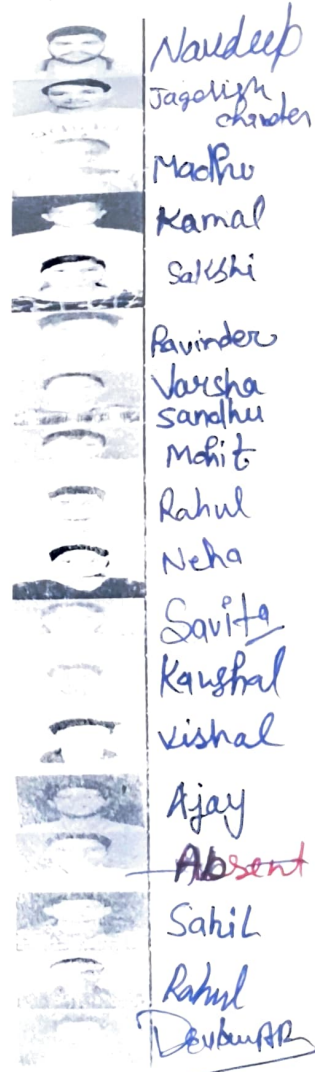 Navdeep
Jagdish
chander
Madhu
Kamal
Sakshi
Ravinder
Varsha
Sandhu
Mohit
Rahul
Neha
Savita
Kaushal
Vishal
Ajay
Absent
Sahil
Rahul